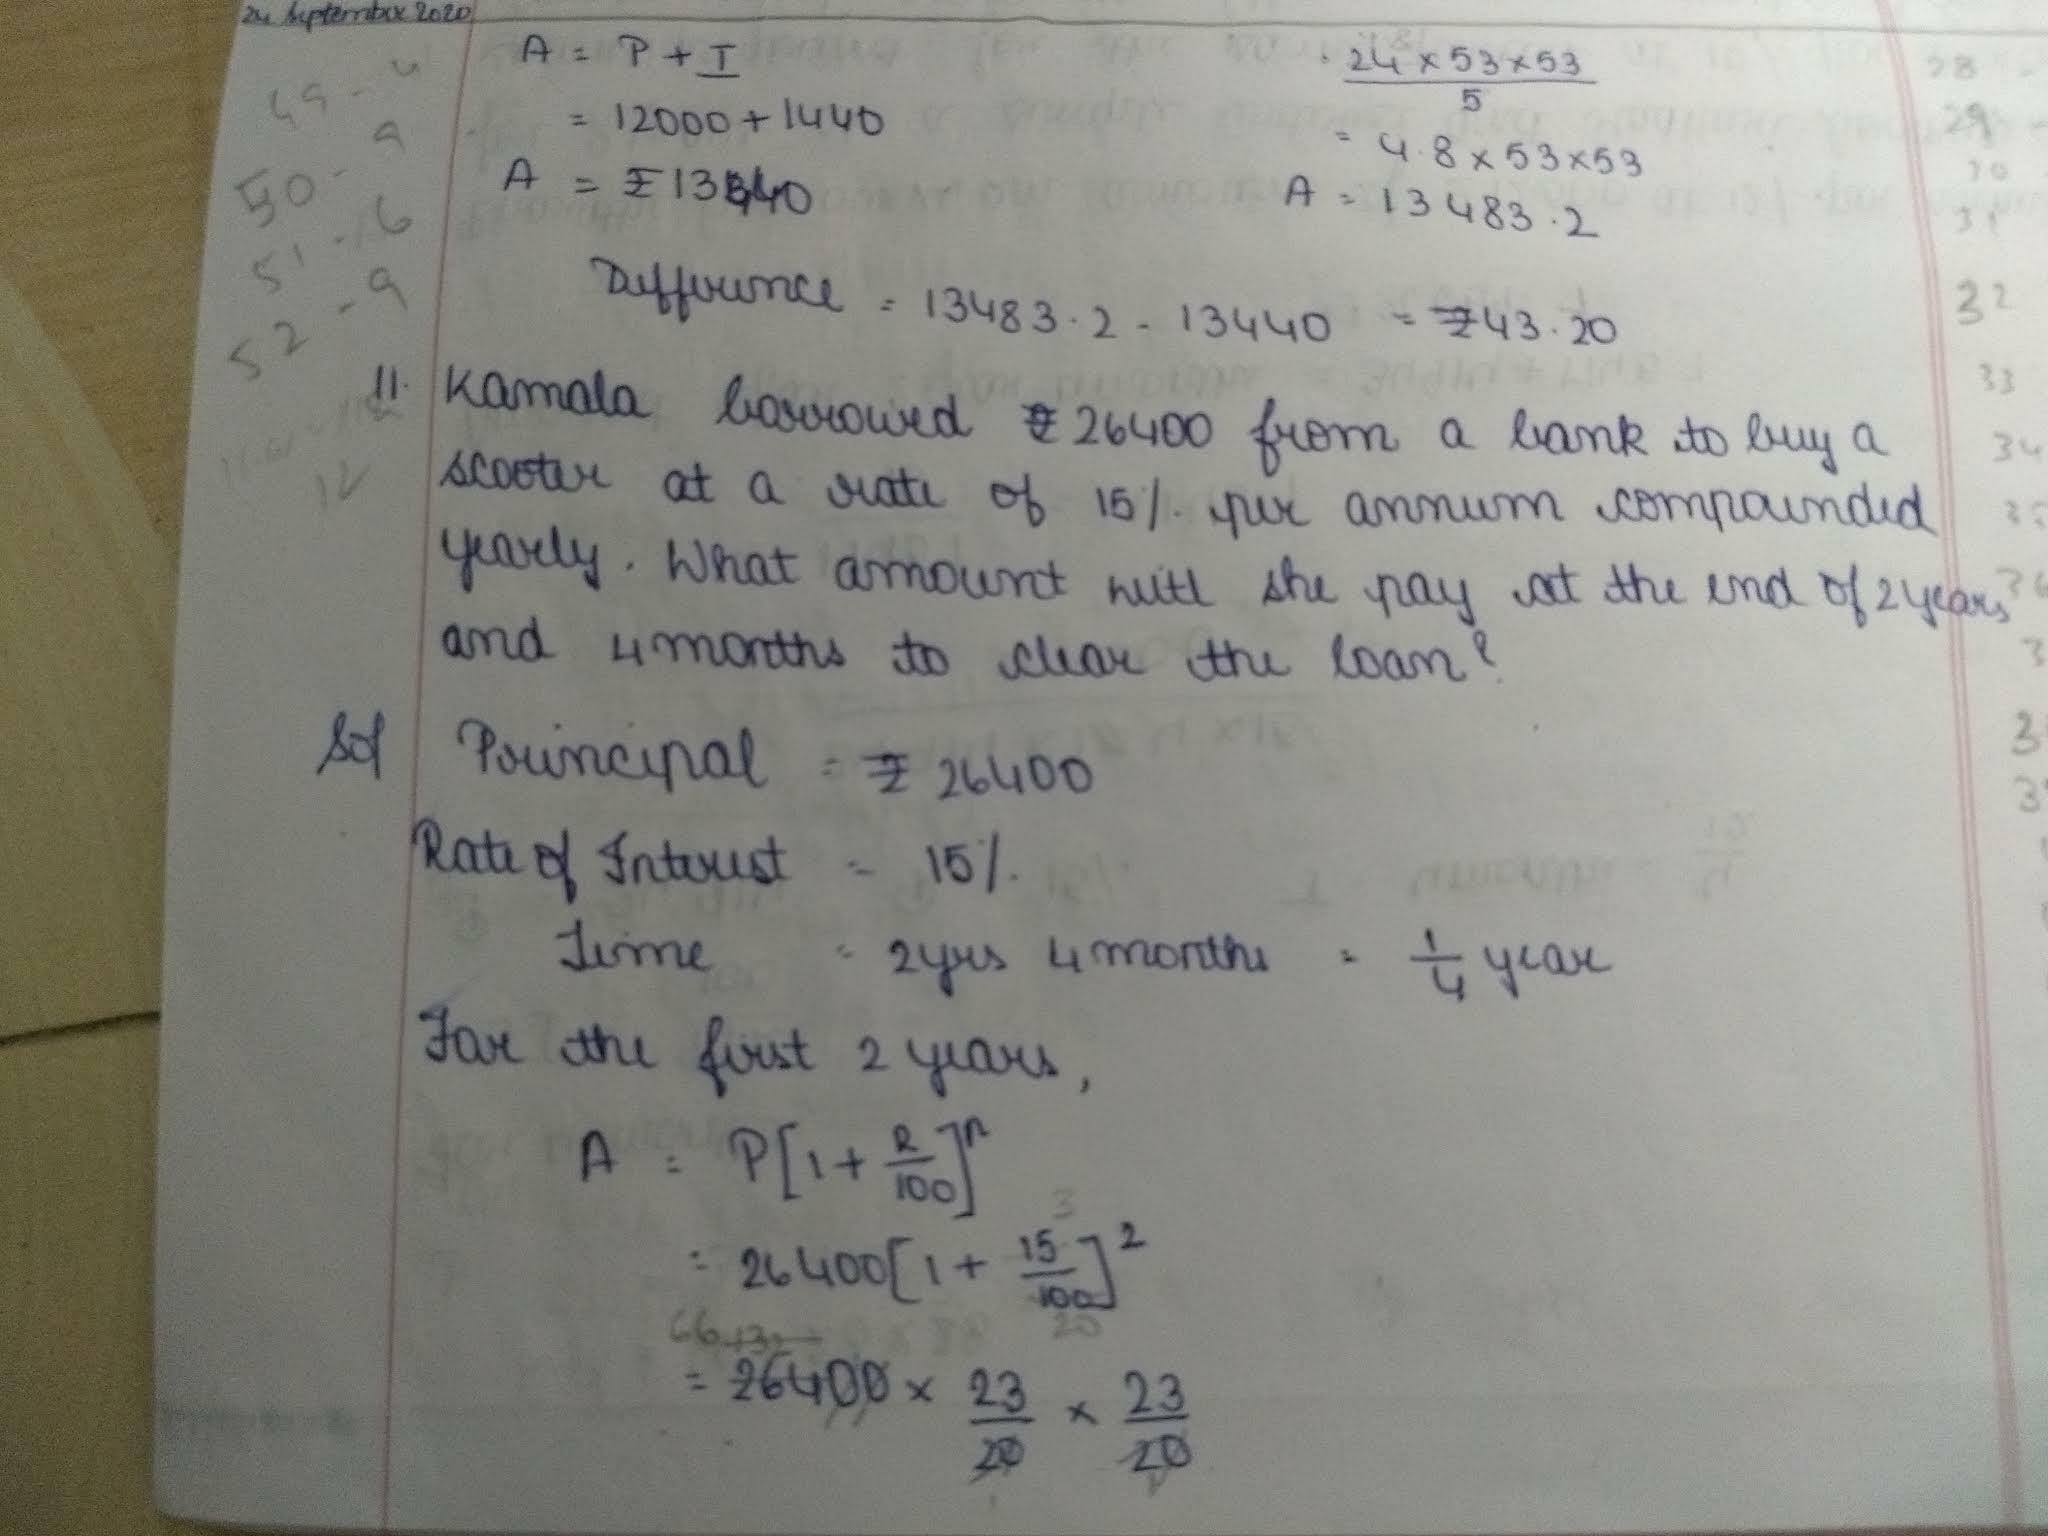 24 September 2020
A = P + I
= 12000 + 1440
A = ₹13440
24 × 53 × 53
5
= 4.8 × 53 × 53
A = 13483.2
Difference = 13483.2 - 13440 = ₹43.20
11. Kamala borrowed ₹26400 from a bank to buy a
scooter at a rate of 15% per annum compounded
yearly. What amount will she pay at the end of 2 years
and 4 months to clear the loan?
Sol Principal = ₹26400
Rate of Interest = 15%
Time = 2yrs 4 months = 1/4 year
For the first 2 years,
A = P[1 + R/100]ⁿ
3
= 26400[1 + 15/100]²
20
66 132
= 26400 × 23/20 × 23/20
49 - 4
50 - 9
51 - 6
52 - 9
12
28 -
29 -
30
31
32
33
34
35
36